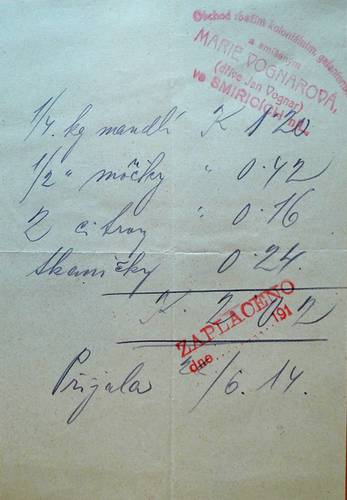 Obchod zbožím koloniálním, galanterním
a smíšeným
MARIE VOGNAROVÁ,
(dříve Jan Vognar)
ve SMIŘICÍCH n. L.
1/4 kg mandlí K 1 20
1/2 " močky " 0·42
2 citrony " 0·16
tkaničky 0·24
K 2 02
ZAPLACENO
dne 191
Přijala /6. 14.